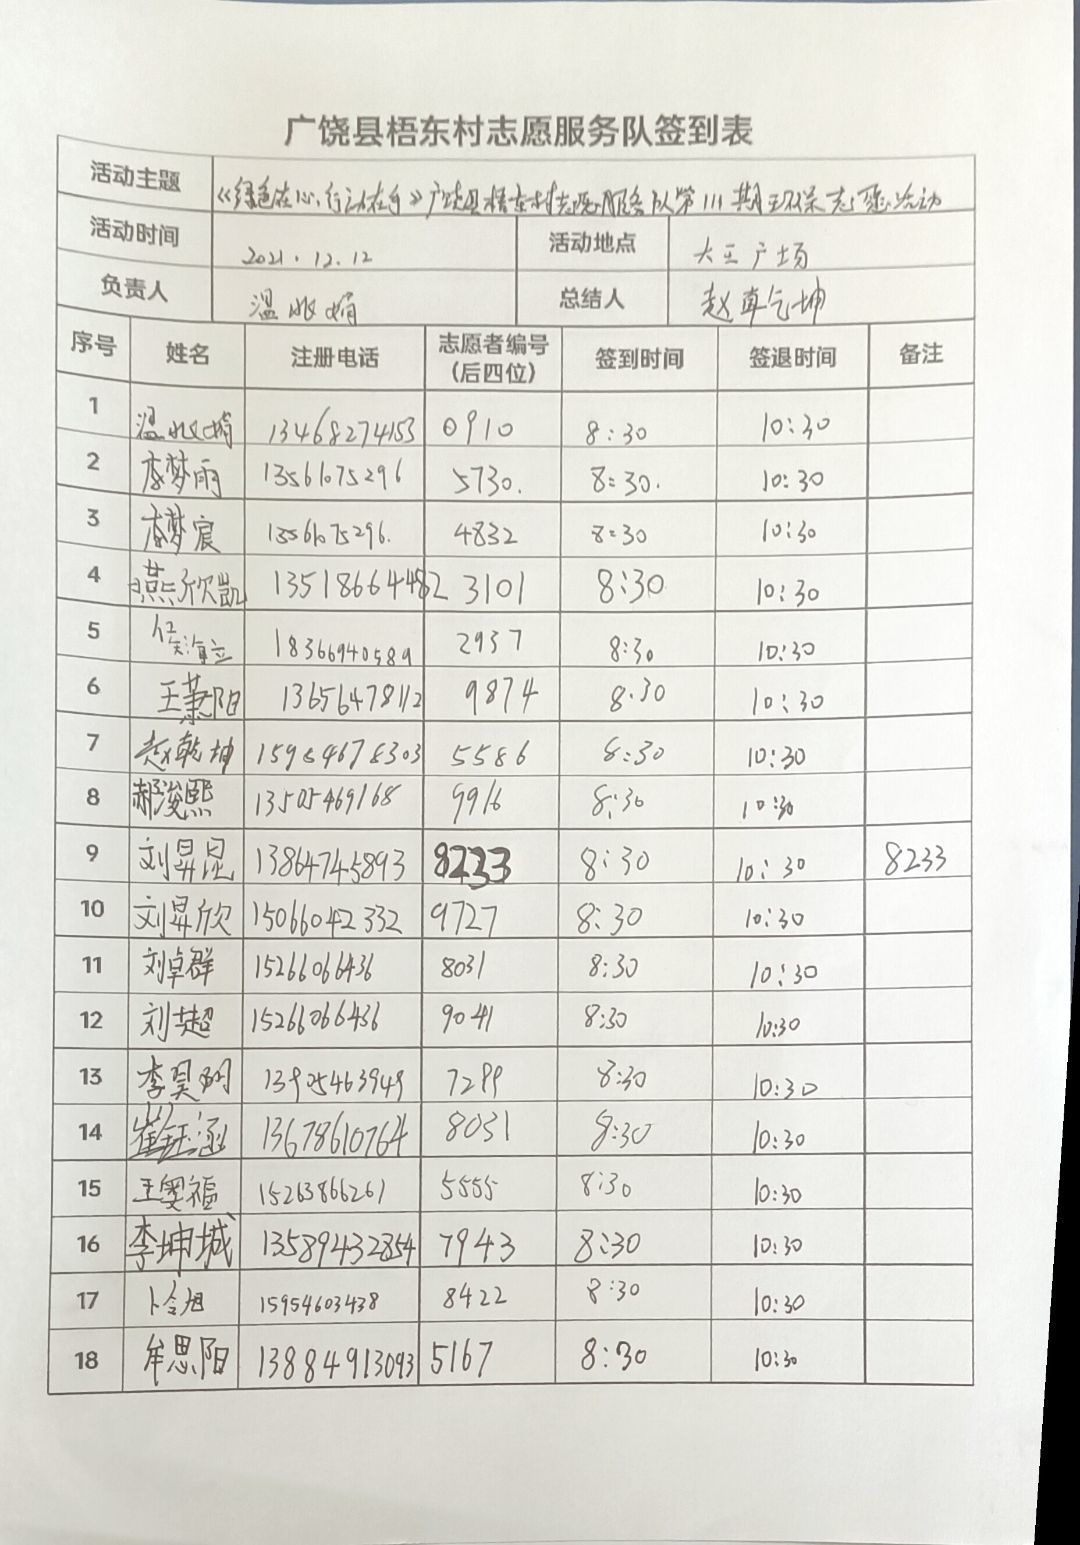 广饶县梧东村志愿服务队签到表
活动主题 《绿色在心,行动在手》广饶县梧东村志愿服务队第111期环保志愿活动
活动时间 2021.12.12 活动地点 大王广场
负责人 温 娟 总结人 赵乾坤
序号 姓名 注册电话 志愿者编号(后四位) 签到时间 签退时间 备注
1 温 娟 13468274153 0910 8:30 10:30
2 李梦雨 13561075296 5730. 8:30. 10:30
3 李梦宸 13561075296. 4832 8:30 10:30
4 燕欣凯 13518664482 3101 8:30 10:30
5 侯 18366940589 2937 8:30 10:30
6 王萧阳 13656478112 9874 8:30 10:30
7 赵乾坤 15954678303 5586 8:30 10:30
8 郝浚熙 13505469168 9916 8:30 10:30
9 刘昇昆 13864745893 8233 8:30 10:30 8233
10 刘昇欣 15066042332 9727 8:30 10:30
11 刘卓群 15266066436 8031 8:30 10:30
12 刘 超 15266066436 9041 8:30 10:30
13 李昊 13905463949 7289 8:30 10:30
14 崔钰涵 13678610764 8031 8:30 10:30
15 王 福 15263866261 5555 8:30 10:30
16 李坤城 13589432854 7943 8:30 10:30
17 卜令旭 15954603438 8422 8:30 10:30
18 牟思阳 13884913093 5167 8:30 10:30